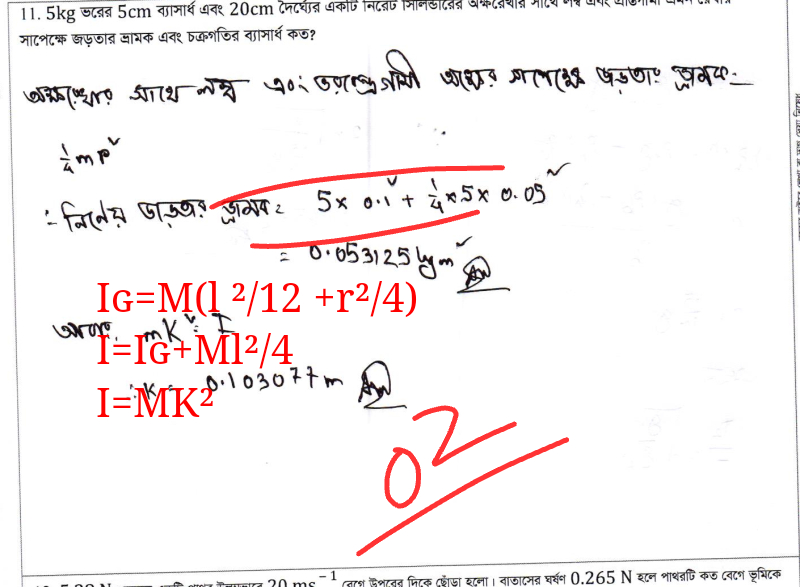 11. 5kg ভরের 5cm ব্যাসার্ধ এবং 20cm দৈর্ঘ্যের একটি নিরেট সিলিন্ডারের অক্ষরেখার সাথে লম্ব এবং
সাপেক্ষে জড়তার ভ্রামক এবং চক্রগতির ব্যাসার্ধ কত?
অক্ষরেখার সাথে লম্ব এবং ভরকেন্দ্রগামী অক্ষের সাপেক্ষে জড়তার ভ্রামক:-
1/4 mr²
∴ নির্ণেয় জড়তার ভ্রামক = 5× 0.1² + 1/4 ×5× 0.05²
= 0.053125 kgm² Ans
IG=M(l ²/12 +r²/4)
আবার, mK² = I
I=IG+Ml²/4
∴ K = 0.103077 m Ans
I=MK²
02
20 ms⁻¹ বেগে উপরের দিকে ছোঁড়া হলো। বাতাসের ঘর্ষণ 0.265 N হলে পাথরটি কত বেগে ভূমিকে